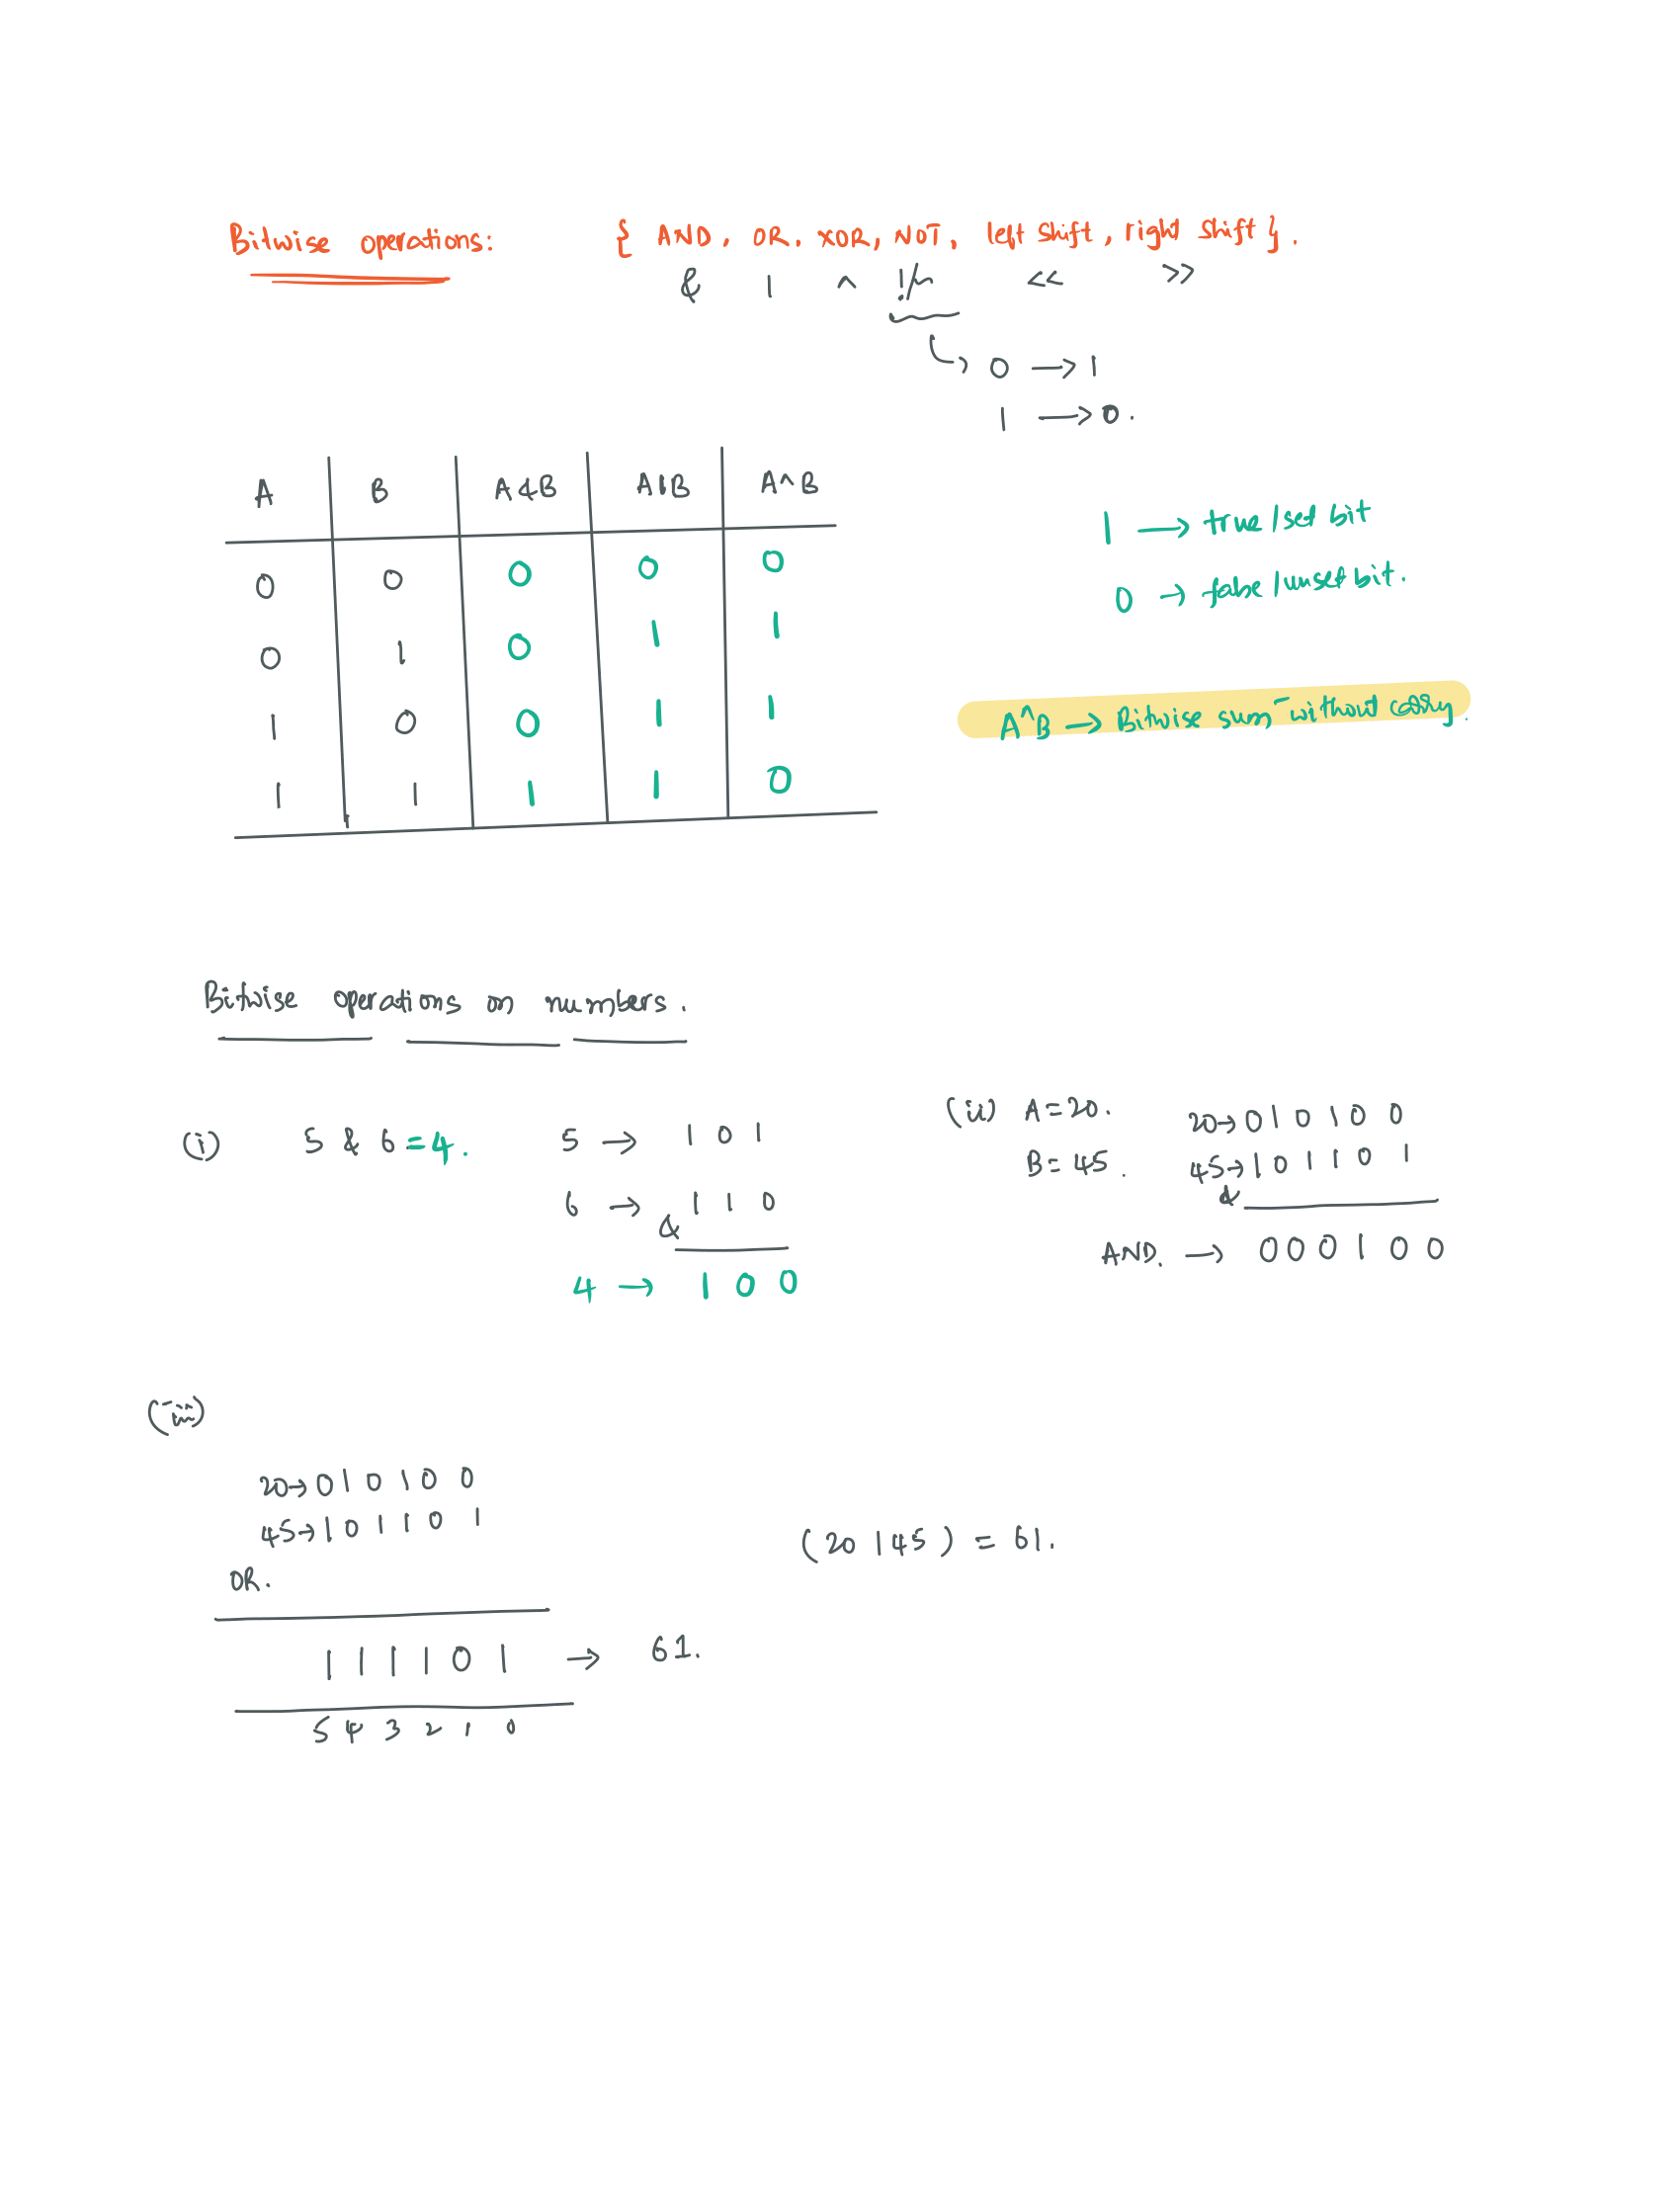 Bitwise operations: { AND, OR, XOR, NOT, left shift, right shift}.
& | ^ !/~ << >>
0 → 1
1 → 0.
A B A&B A|B A^B
0 0 0 0 0
0 1 0 1 1
1 0 0 1 1
1 1 1 1 0
1 → true/set bit
0 → false/unset bit.
A^B → Bitwise sum without carry.
Bitwise operations on numbers.
(i) 5 & 6 = 4.
5 → 1 0 1
6 → 1 1 0
&
4 → 1 0 0
(ii) A = 20.
B = 45.
20→ 0 1 0 1 0 0
45→ 1 0 1 1 0 1
&
AND. → 0 0 0 1 0 0
(iii)
20→ 0 1 0 1 0 0
45→ 1 0 1 1 0 1
OR.
1 1 1 1 0 1 → 61.
5 4 3 2 1 0
(20 | 45) = 61.